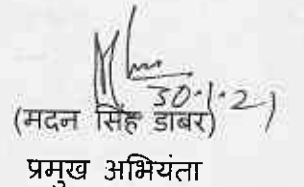 30.1.21
(मदन सिंह डाबर)
प्रमुख अभियंता